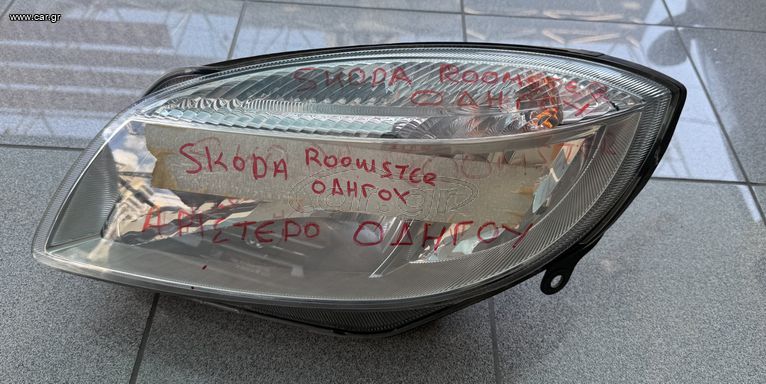 www.car.gr
SKODA ROOMSTER
ΟΔΗΓΟΥ
SKODA ROOMSTER
ΟΔΗΓΟΥ
ΑΡΙΣΤΕΡΟ ΟΔΗΓΟΥ
car.gr